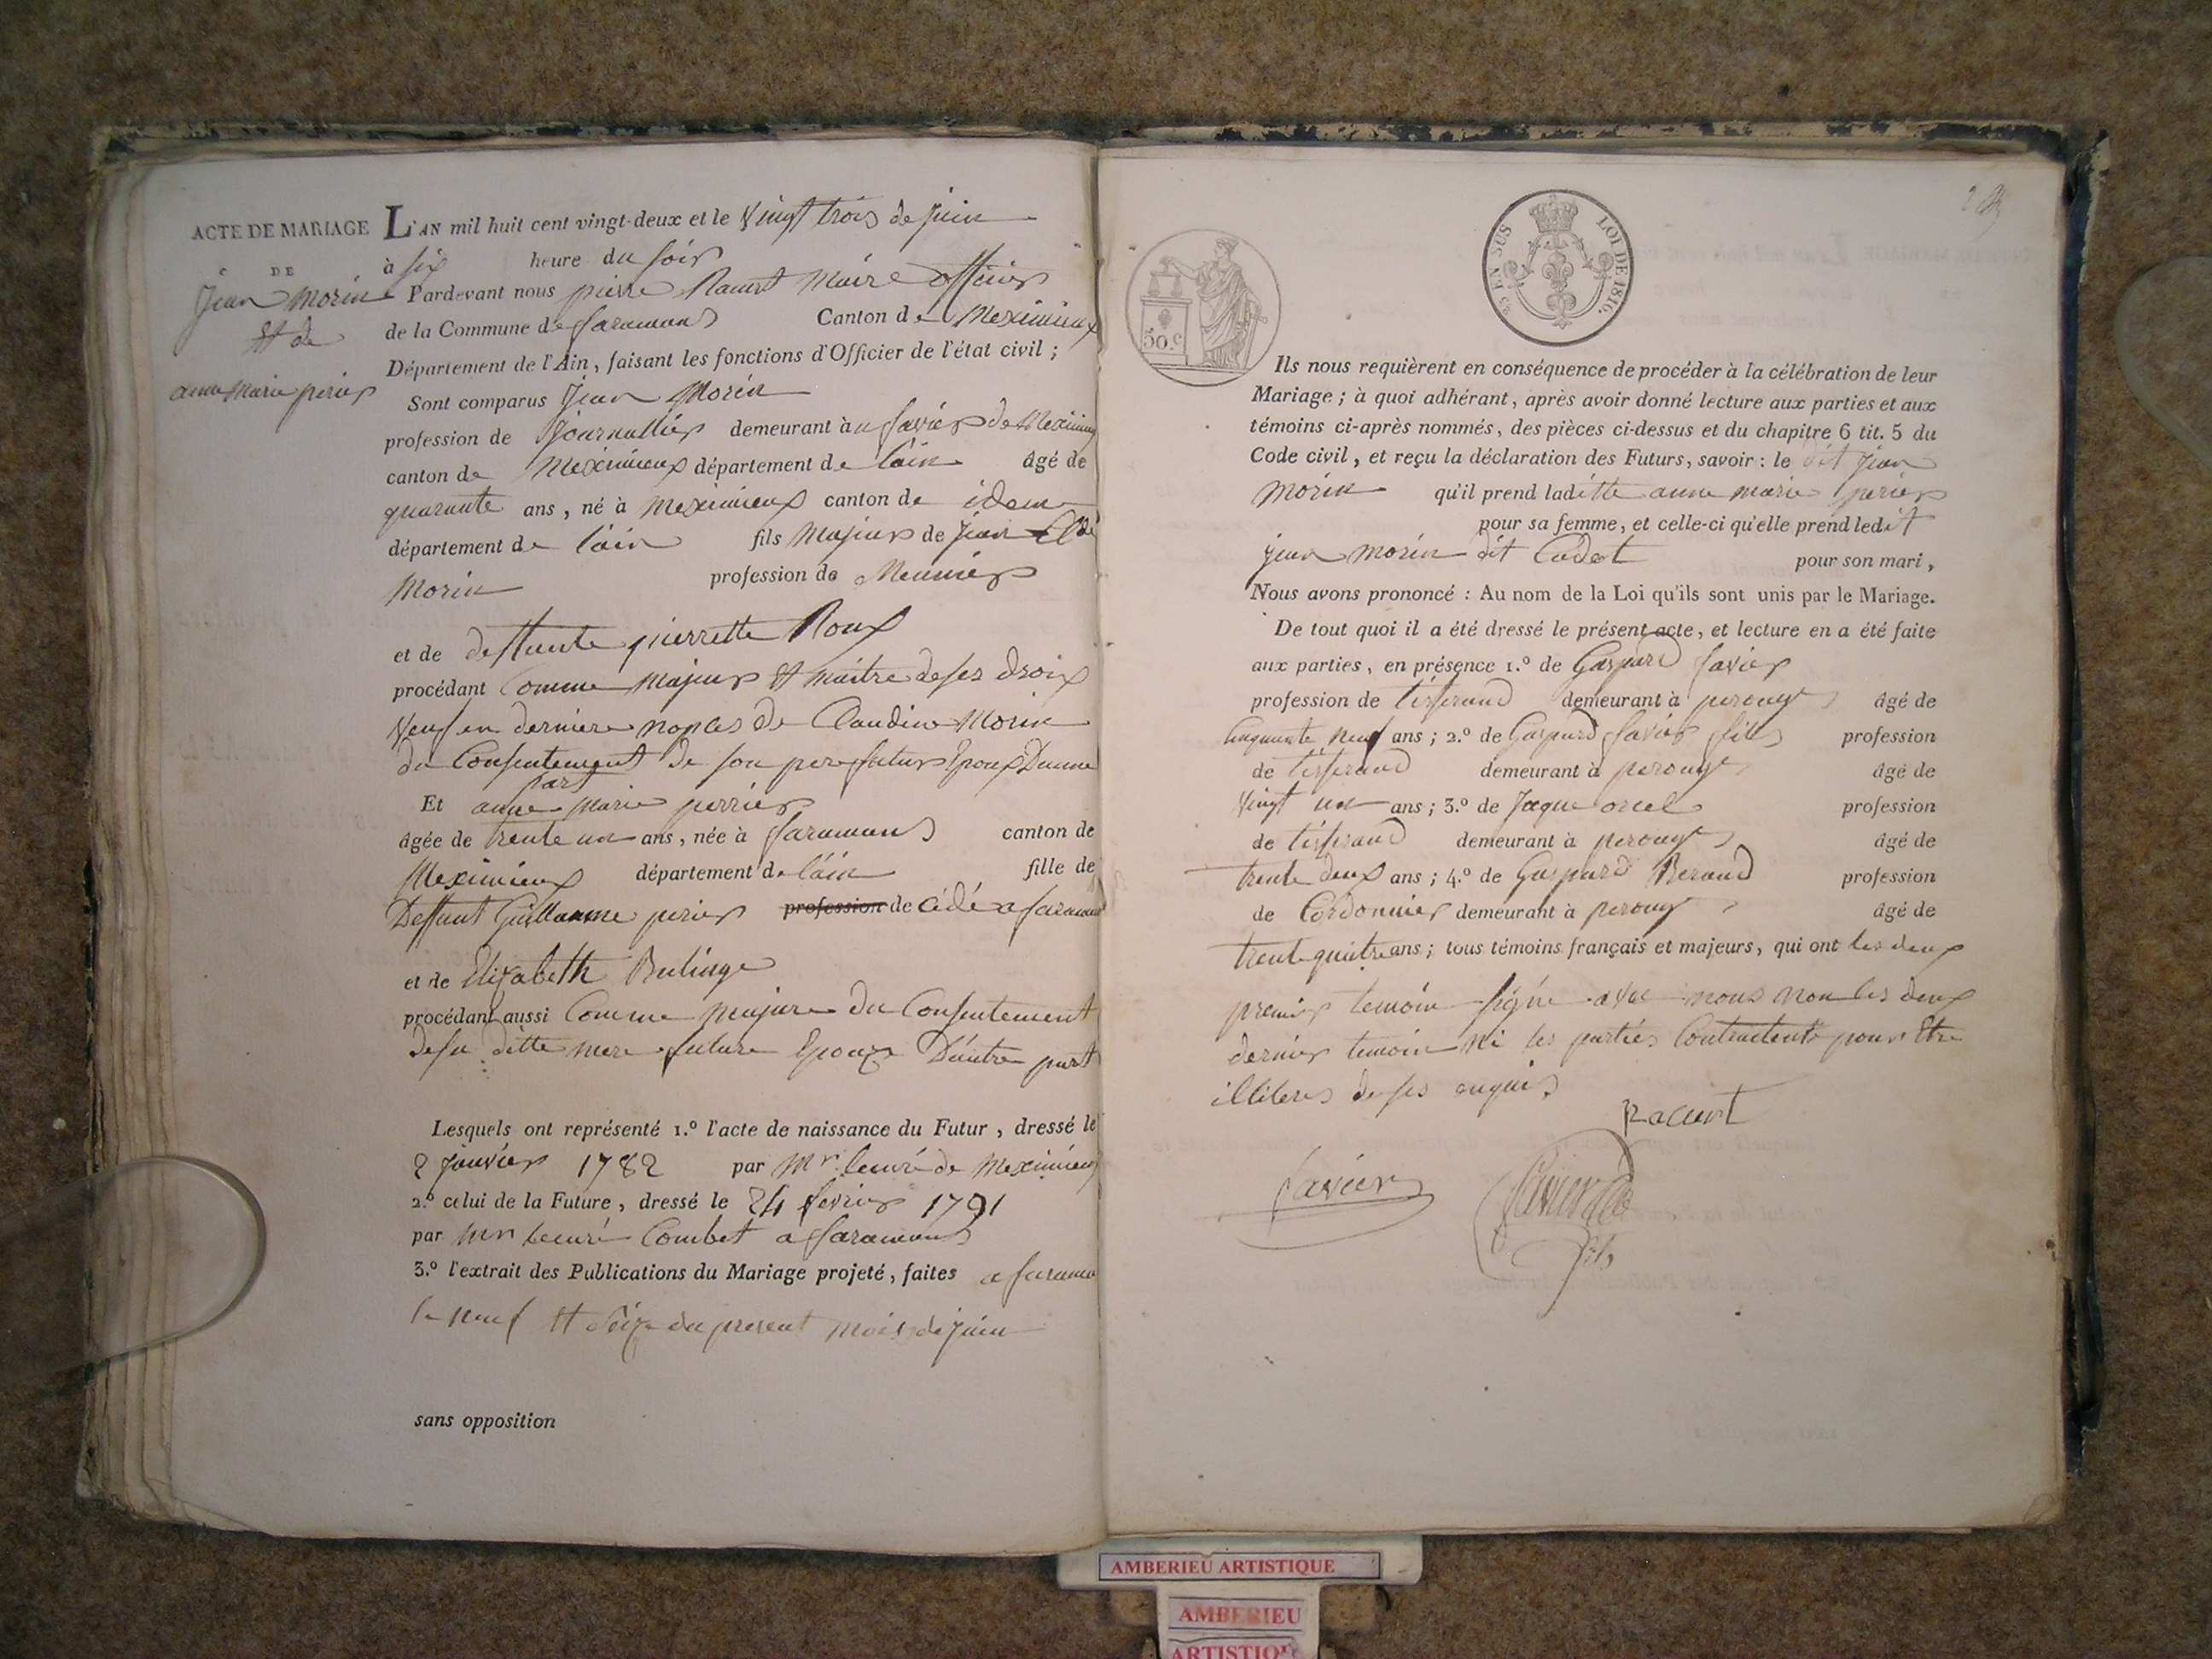 ACTE DE MARIAGE
DE
Jean Morin
Et de
anne Marie perier
L'AN mil huit cent vingt-deux et le vingt trois de juin
à six heure du soir
Pardevant nous pierre Racurt Maire officier
de la Commune de faramans Canton de Meximieux
Département de l'Ain, faisant les fonctions d'Officier de l'état civil ;
Sont comparus Jean Morin
profession de Journallier demeurant à favier de Meximieux
canton de Meximieux département de lain âgé de
quarante ans, né à Meximieux canton de idem
département de lain fils Majeur de Jean
Morin profession de Meunier
et de deffunte pierrette Roux
procédant Comme Majeur Et maitre de ses droix
veuf en derniere nopces de Claudine Morin
du Consentement de son pere futur Epoux Dunne
part
Et anne Marie perrier
âgée de trente un ans, née à faramans canton de
Meximieux département de lain fille de
Deffunt Guillaume perier profession de cédé a faramans
et de Elizabeth Bulinge
procédant aussi Comme majure du Consentement
de sa ditte mere future Epouze D'autre part
Lesquels ont représenté 1.º l'acte de naissance du Futur, dressé le
2 janvier 1782 par Mr. le curé de Meximieux
2.º celui de la Future, dressé le 24 fevrier 1791
par mr le curé Combet a faramans
3.º l'extrait des Publications du Mariage projeté, faites a farama
le neuf Et Seize du present mois de juin
sans opposition
50.c
EN SUS
LOI DE 1816.
Ils nous requièrent en conséquence de procéder à la célébration de leur
Mariage ; à quoi adhérant, après avoir donné lecture aux parties et aux
témoins ci-après nommés, des pièces ci-dessus et du chapitre 6 tit. 5 du
Code civil, et reçu la déclaration des Futurs, savoir : le dit Jean
Morin qu'il prend laditte anne marie perier
pour sa femme, et celle-ci qu'elle prend ledit
jean morin dit Cadet pour son mari,
Nous avons prononcé : Au nom de la Loi qu'ils sont unis par le Mariage.
De tout quoi il a été dressé le présent acte, et lecture en a été faite
aux parties, en présence 1.º de Gaspard favier
profession de tisserand demeurant à perouge âgé de
Cinquante neuf ans ; 2.º de Gaspard favier fils profession
de tisserand demeurant à perouge âgé de
vingt un ans ; 3.º de Jaque orcel profession
de tisserand demeurant à perouge âgé de
trente deux ans ; 4.º de Gaspard Beraud profession
de Cordonnier demeurant à perouge âgé de
trente quatre ans ; tous témoins français et majeurs, qui ont les deux
premier temoin signé avec nous non les deux
dernier temoin ni les parties Contractents pour Etre
illiteres de ses enquis
Racurt
favier
favier
fils
AMBERIEU ARTISTIQUE
AMBERIEU
ARTISTIQUE